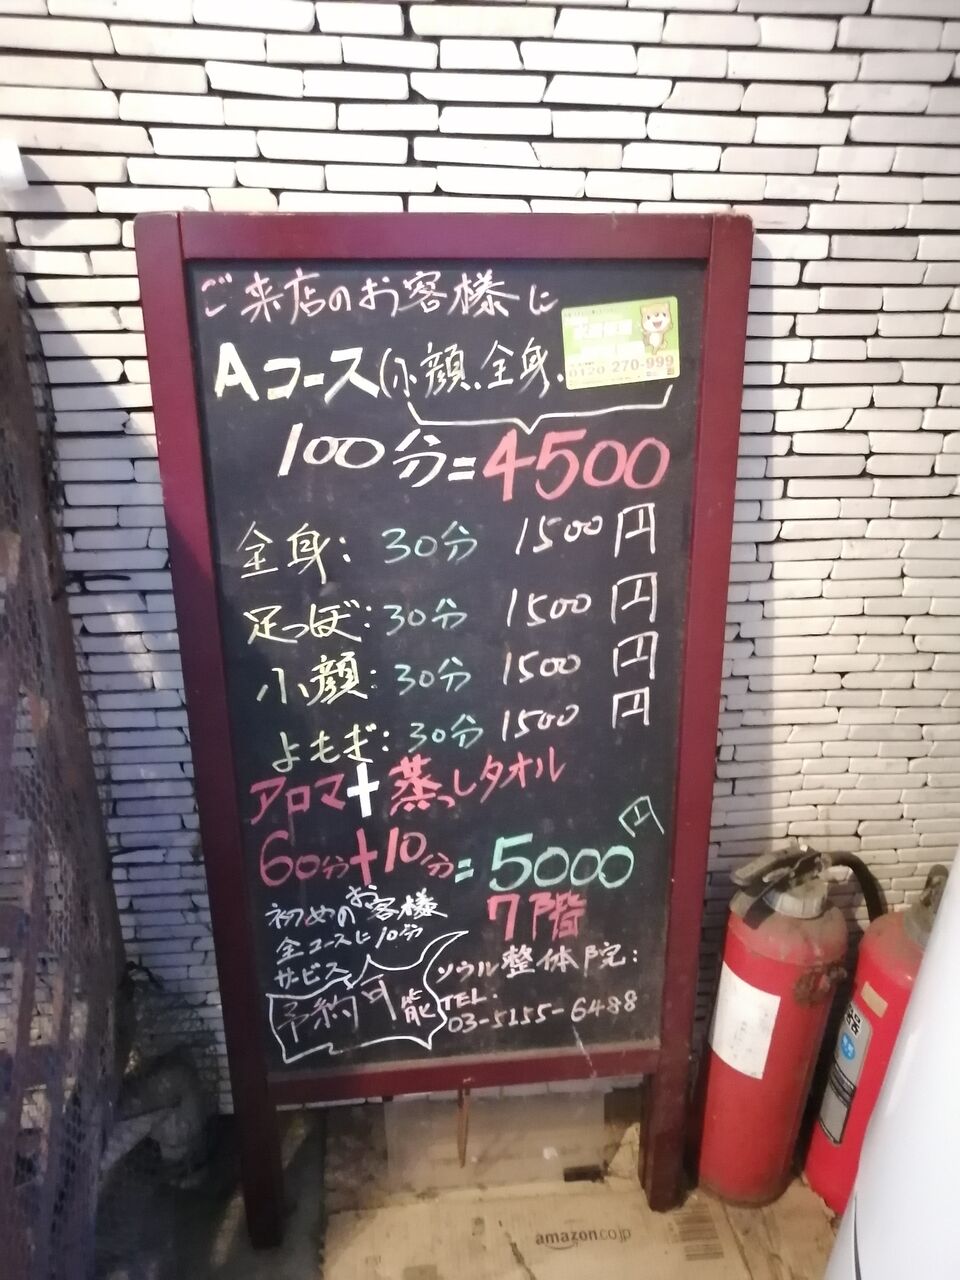 ご来店のお客様に
Aコース(小顔、全身、
0120 270-999
100分=4500
全身: 30分 1500円
足つぼ: 30分 1500円
小顔: 30分 1500円
よもぎ: 30分 1500円
アロマ+蒸しタオル
60分+10分=5000円
初めのお客様
全コースに10分
サービス
7階
ソウル整体院:
予約可能
TEL.
03-5155-6488
amazon.co.jp